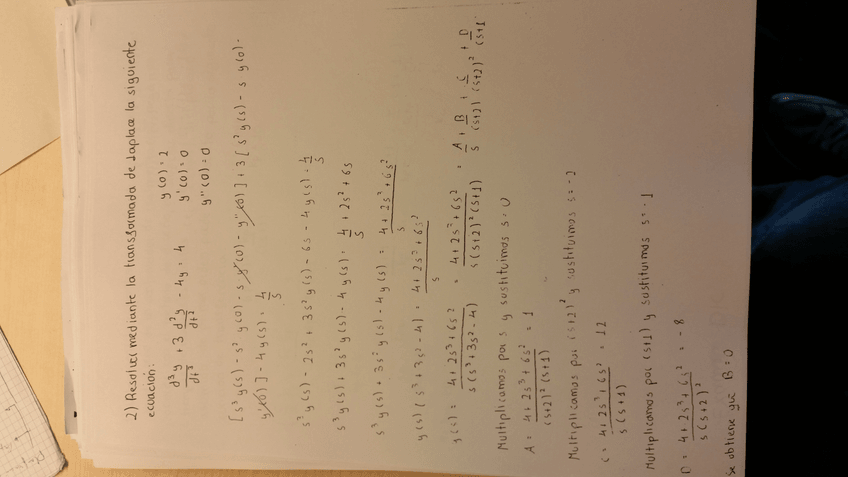 2) Resolver mediante la transformada de Laplace la siguiente
ecuación:
d³y/dt³ + 3 d²y/dt² - 4y = 4
y(0) = 2
y'(0) = 0
y''(0) = 0
[s³y(s) - s²y(0) - s y'(0) - y''(0)] + 3[s²y(s) - s y(0) -
y'(0)] - 4y(s) = 4/s
s³y(s) - 2s² + 3s²y(s) - 6s - 4y(s) = 4/s
s³y(s) + 3s²y(s) - 4y(s) = 4/s + 2s² + 6s
s³y(s) + 3s²y(s) - 4y(s) = 4 + 2s² + 6s²/s
y(s)(s³ + 3s² - 4) = 4 + 2s² + 6s²/s
y(s) = 4 + 2s³ + 6s²/s(s³ + 3s² - 4) = 4 + 2s² + 6s²/s(s+2)²(s+1) = A/s + B/(s+2) + C/(s+2)² + D/(s+1)
Multiplicamos por s y sustituimos s = 0
A = 4 + 2s³ + 6s²/(s+2)²(s+1) = 1
Multiplicamos por (s+2)² y sustituimos s = -2
C = 4 + 2s³ + 6s²/s(s+1) = 12
Multiplicamos por (s+1) y sustituimos s = -1
D = 4 + 2s³ + 6s²/s(s+2)² = -8
Se obtiene que B = 0